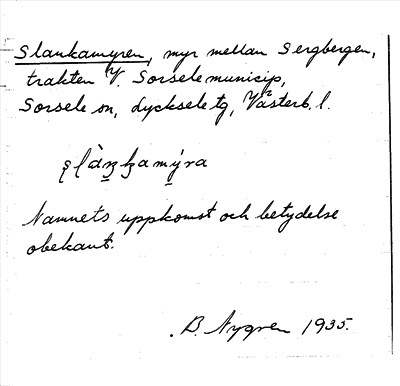 Slankamyren, myr mellan Sergbergen,
trakten V. Sorsele municip,
Sorsele sn, Lycksele tg, Västerb. l.
ʂlàŋkamýra
Namnets uppkomst och betydelse
obekant.
B. Nygren 1935.